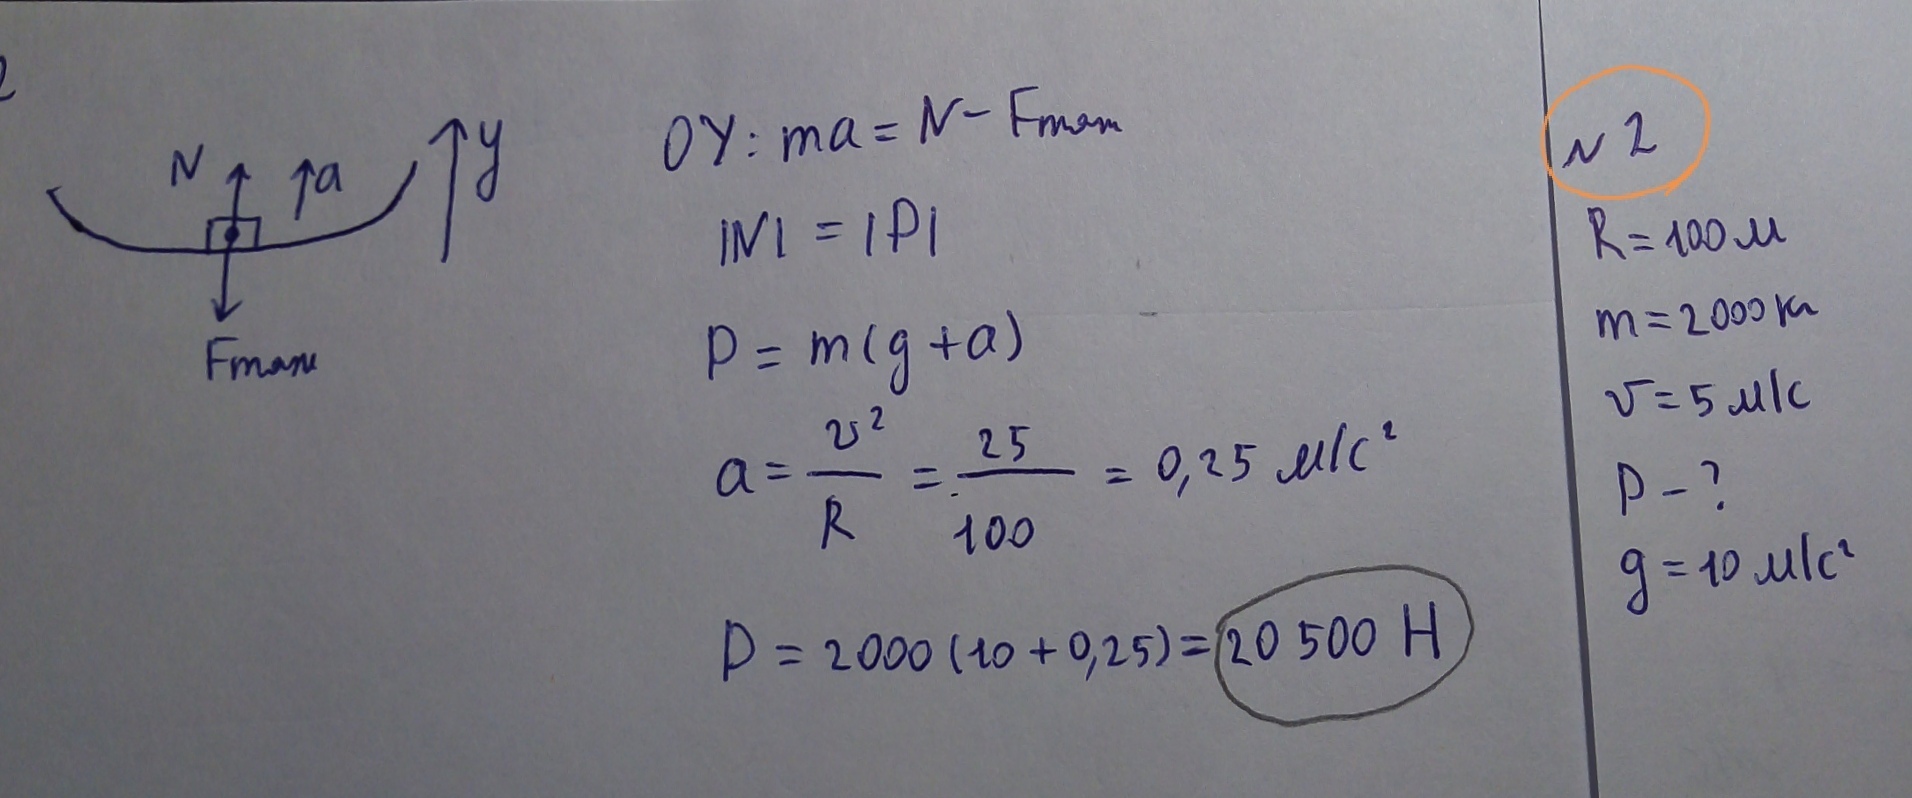 N a y
Fтяж
OY: ma = N - Fтяж
|N| = |P|
P = m(g + a)
a = v² / R = 25 / 100 = 0,25 м/с²
P = 2000 (10 + 0,25) = 20 500 Н
N 2
R = 100 м
m = 2000 кг
v = 5 м/с
P - ?
g = 10 м/с²